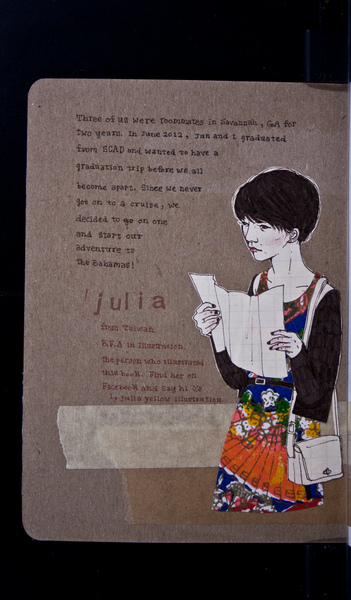 Three of us were roommates in Savannah, GA for
two years. In June 2012, Jan and I graduated
from SCAD and wanted to have a
graduation trip before we all
become apart. Since we never
got on to a cruise, we
decided to go on one
and start our
adventure to
the Bahamas!
julia
from Taiwan.
B.F.A in Illustration.
the person who illustrated
this book. Find her on
Facebook and say hi
julia yellow illustration